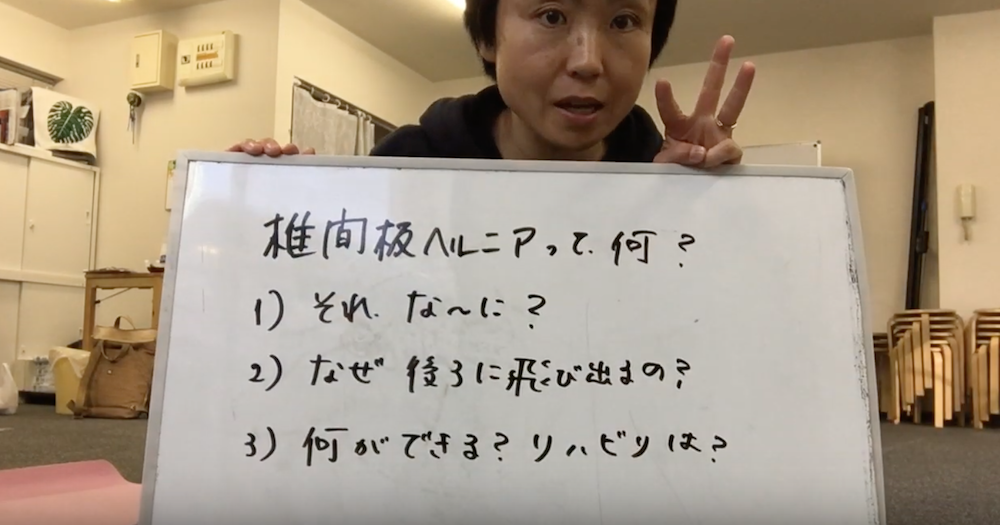 椎間板ヘルニアって、何？
1) それ、な〜に？
2) なぜ 後ろに飛び出るの？
3) 何ができる？ リハビリは？